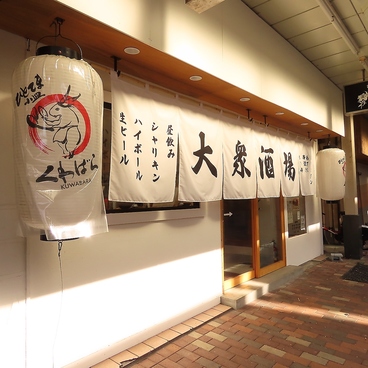 くわばら
KUWABARA
昼飲み
シャリキン
ハイボール
生ビール
大衆酒場